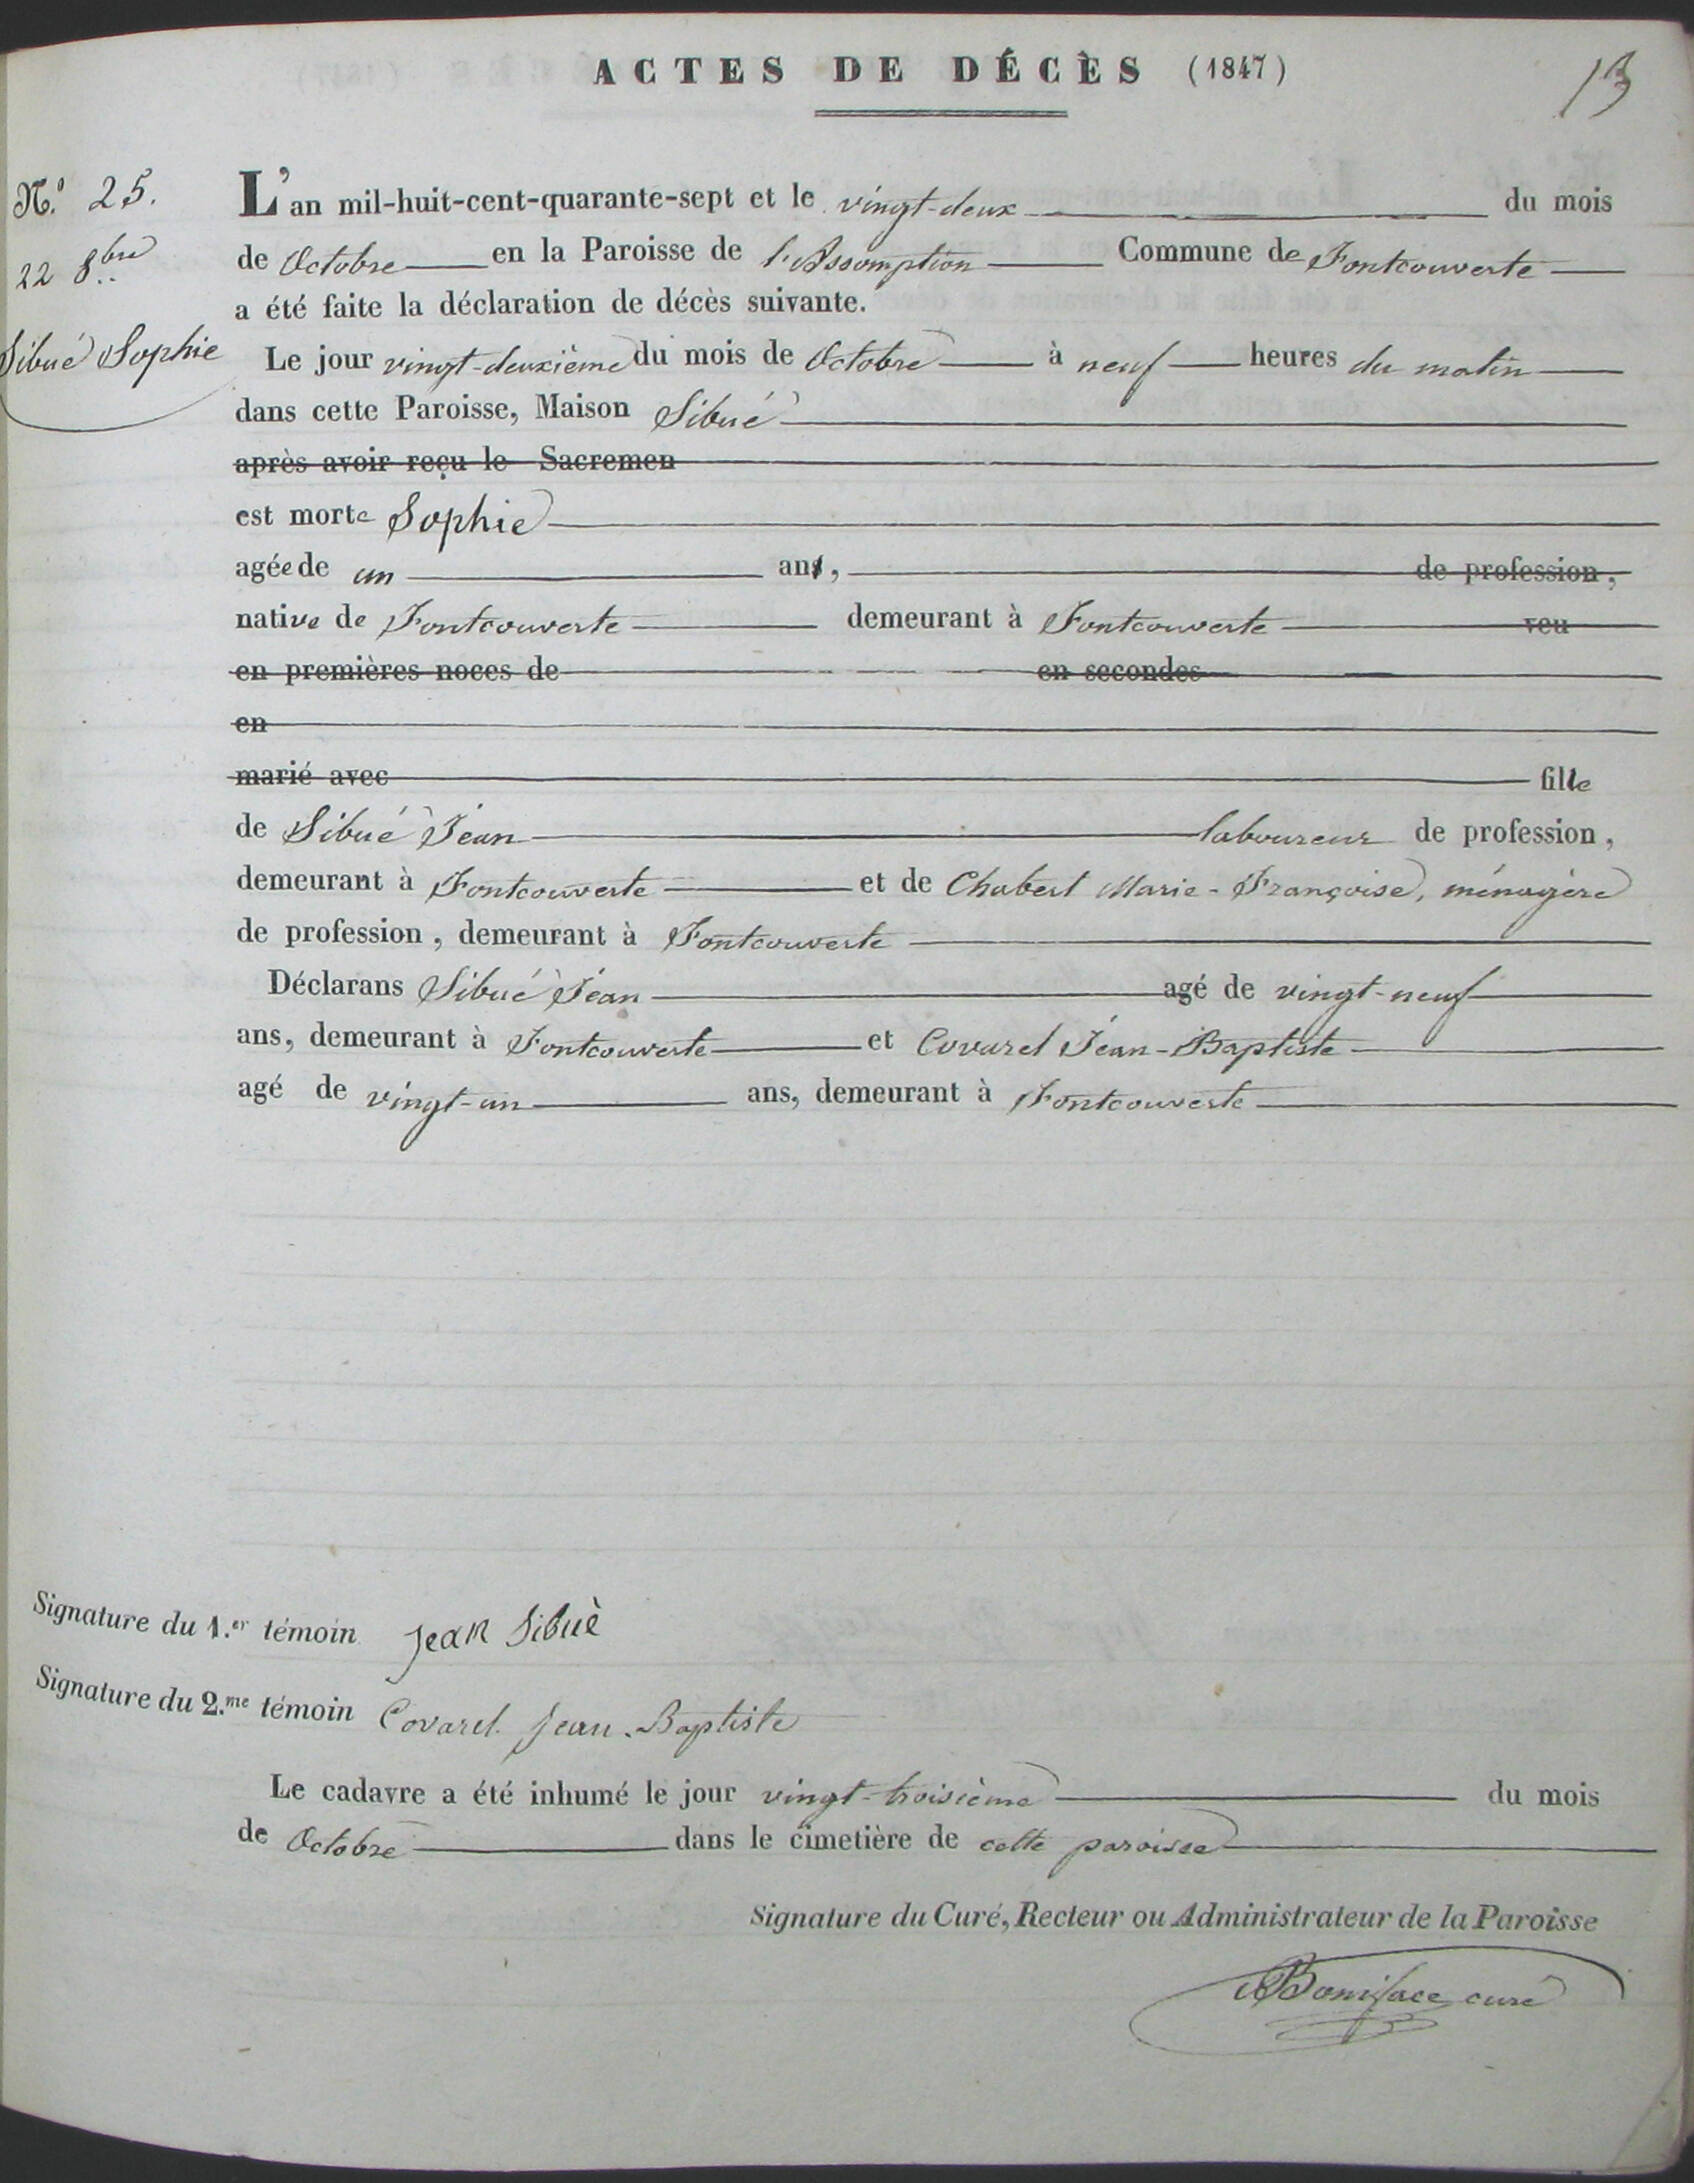 ACTES DE DÉCÈS (1847)
13
N.º 25.
22 8bre
Sibué Sophie
L'an mil-huit-cent-quarante-sept et le vingt-deux du mois
de Octobre en la Paroisse de l'Assomption Commune de Fontcouverte
a été faite la déclaration de décès suivante.
Le jour vingt-deuxième du mois de Octobre à neuf heures du matin
dans cette Paroisse, Maison Sibué
après avoir reçu le Sacremen
est morte Sophie
agée de un ans, de profession,
native de Fontcouverte demeurant à Fontcouverte veu
en premières noces de en secondes
en
marié avec fille
de Sibué Jean laboureur de profession,
demeurant à Fontcouverte et de Chabert Marie-Françoise, ménagère
de profession, demeurant à Fontcouverte
Déclarans Sibué Jean agé de vingt-neuf
ans, demeurant à Fontcouverte et Covarel Jean-Baptiste
agé de vingt-un ans, demeurant à Fontcouverte
Signature du 1.er témoin Jean Sibuè
Signature du 2.me témoin Covarel Jean-Baptiste
Le cadavre a été inhumé le jour vingt-troisième du mois
de Octobre dans le cimetière de cette paroisse
Signature du Curé, Recteur ou Administrateur de la Paroisse
Boniface curé